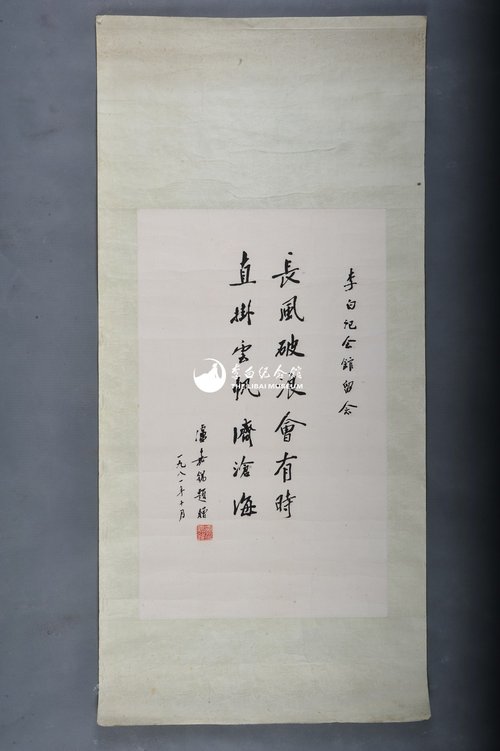 李白纪念館留念
長風破浪會有時
直掛雲帆濟滄海
盧嘉錫題贈
一九八一年十月
李白纪念館
THE LIBAI MUSEUM